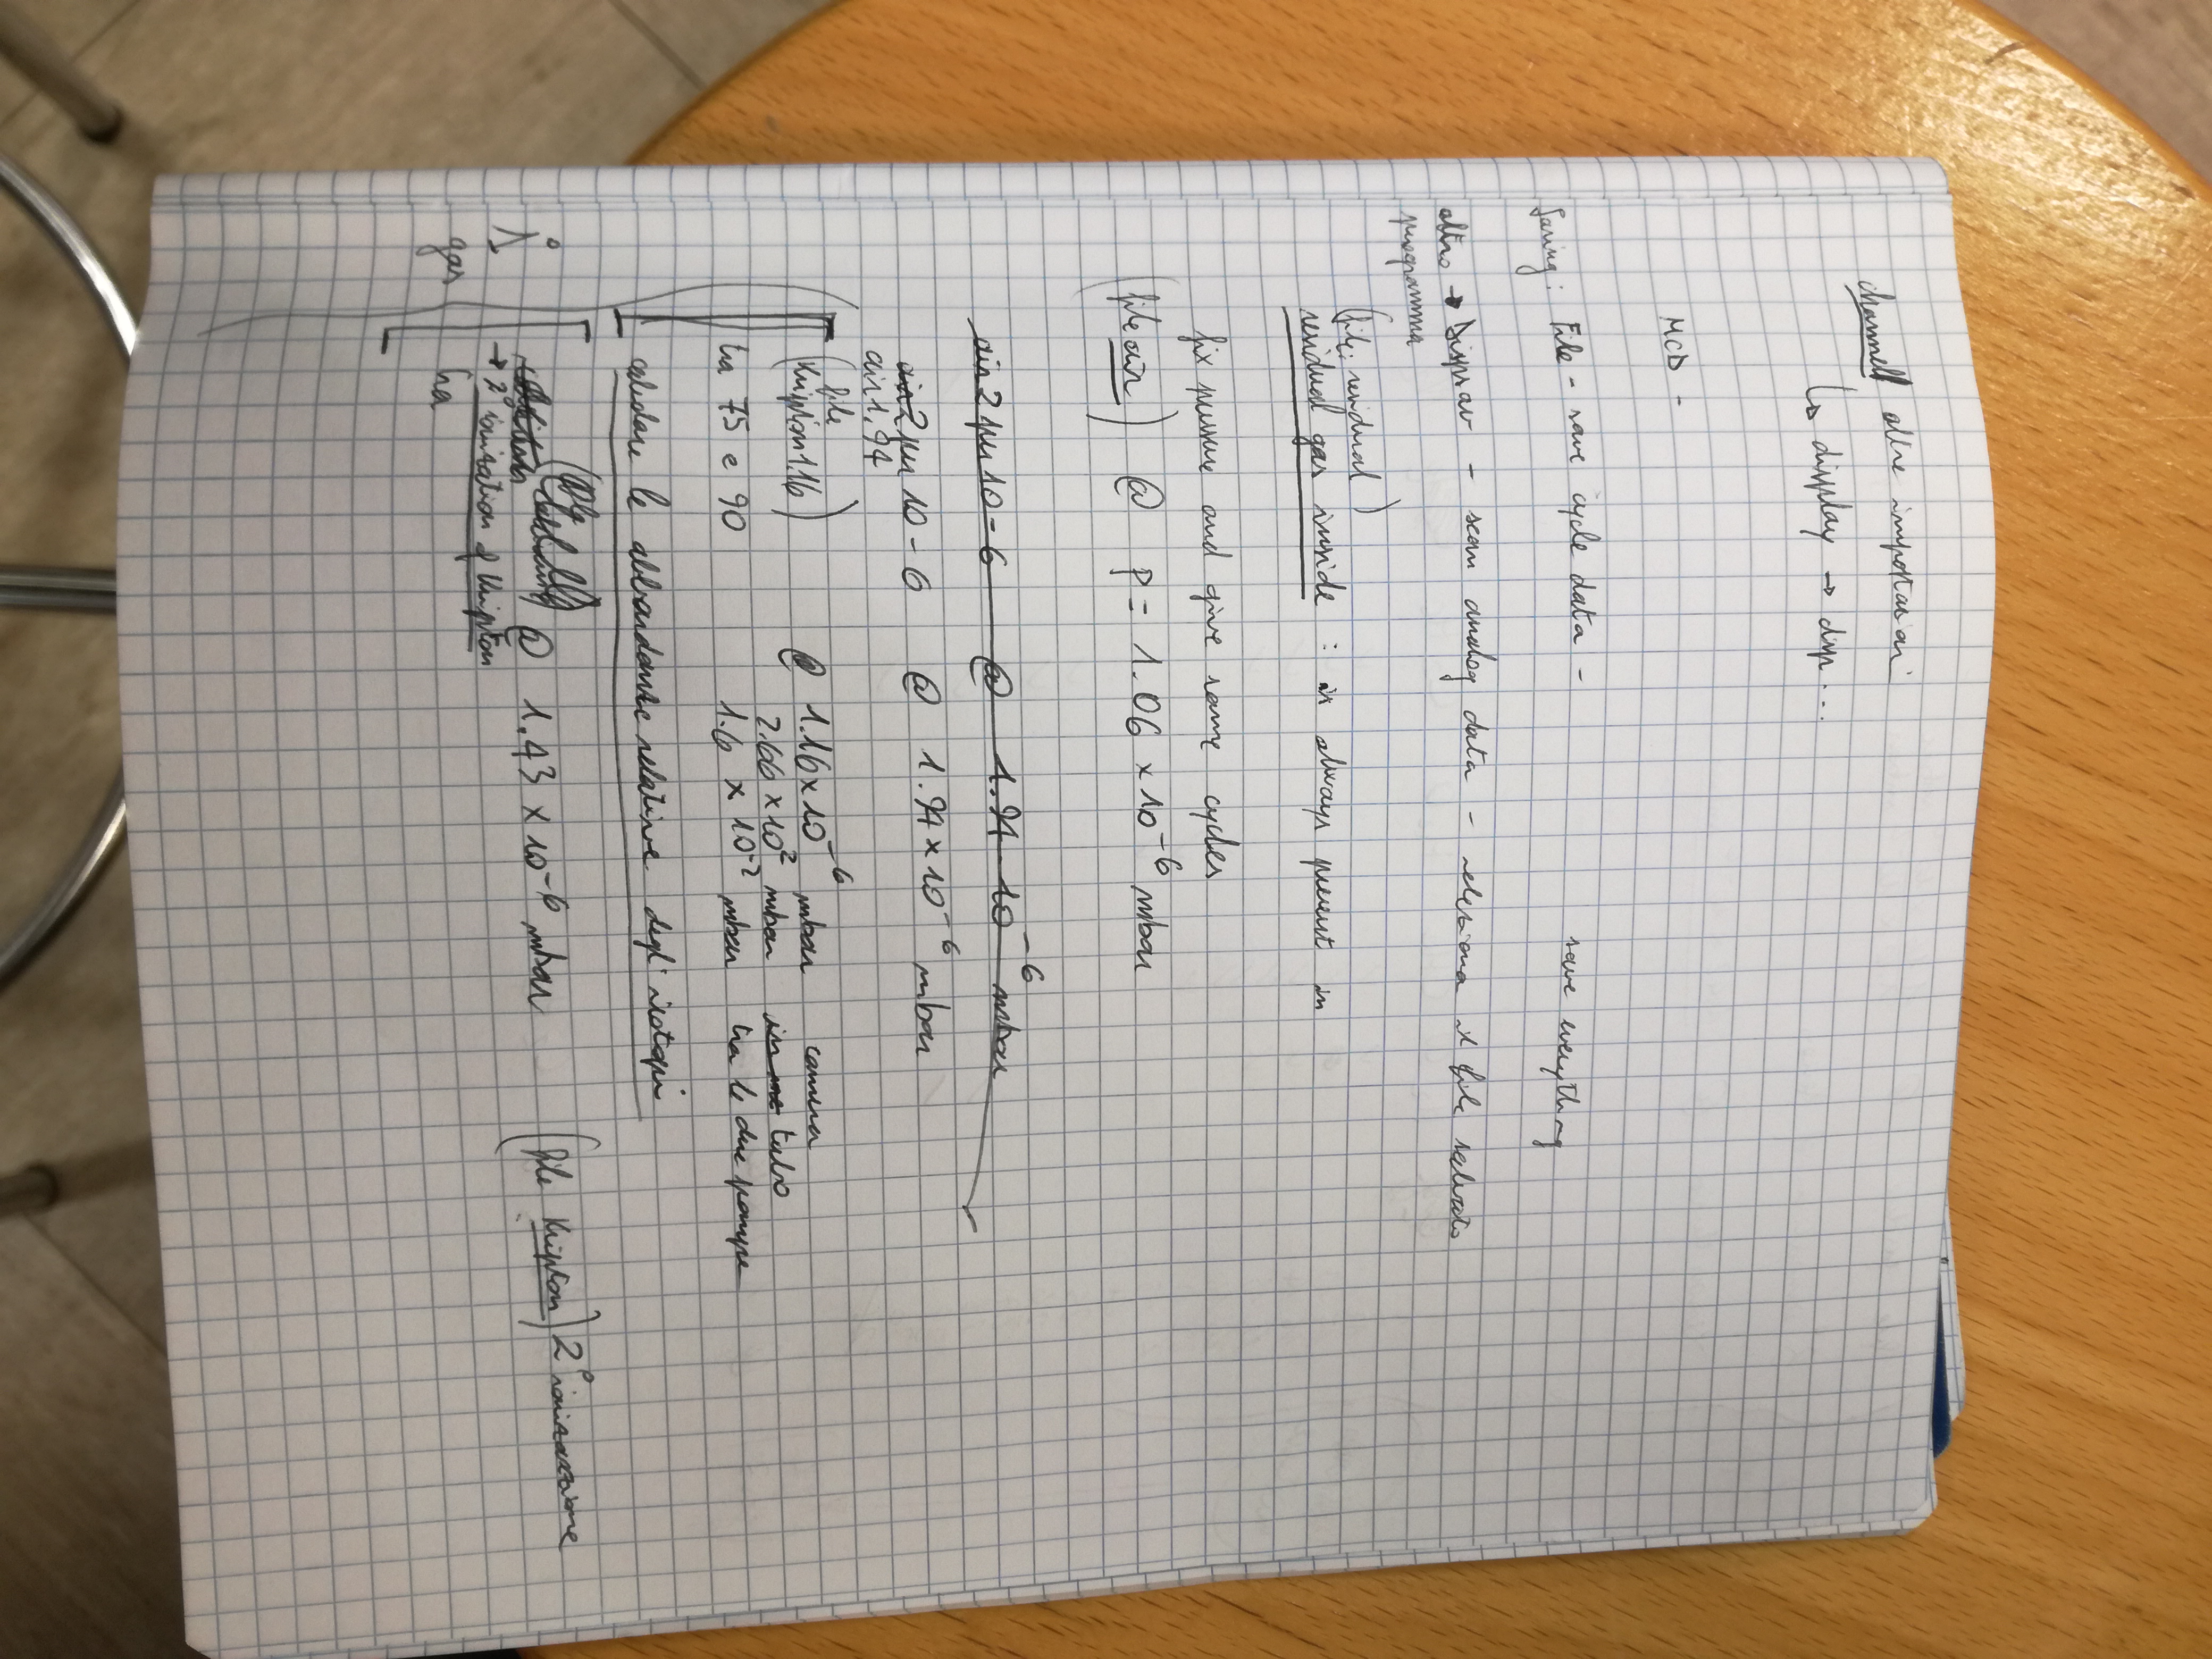 channell altre impostazioni
↳ display → disp...
MCD -
Saving: File - save cycle data - save everything
altro → Display - scan analog data - seleziona il file salvato
programma
(file: residual)
residual gas inside : is always present in
fix pressure and give same cycles
(file air) @ P = 1.06 × 10⁻⁶ mbar
air 2 più 10-6 @ 1.94 10⁻⁶ mbar
air 2 più 10-6 @ 1.94 × 10⁻⁶ mbar
air 1.94
(file
Kripton 1.16) @ 1.16 × 10⁻⁶ mbar camera
2.66 × 10² mbar tubo
tra 75 e 90 1.6 × 10⁻² mbar tra le due pompe
calcolare le abbondanze relative degli isotopi
@ 1.43 × 10⁻⁶ mbar (file Kripton) 2° ionizzazione
→ 2° ionization of Kripton
1°
gas
tra